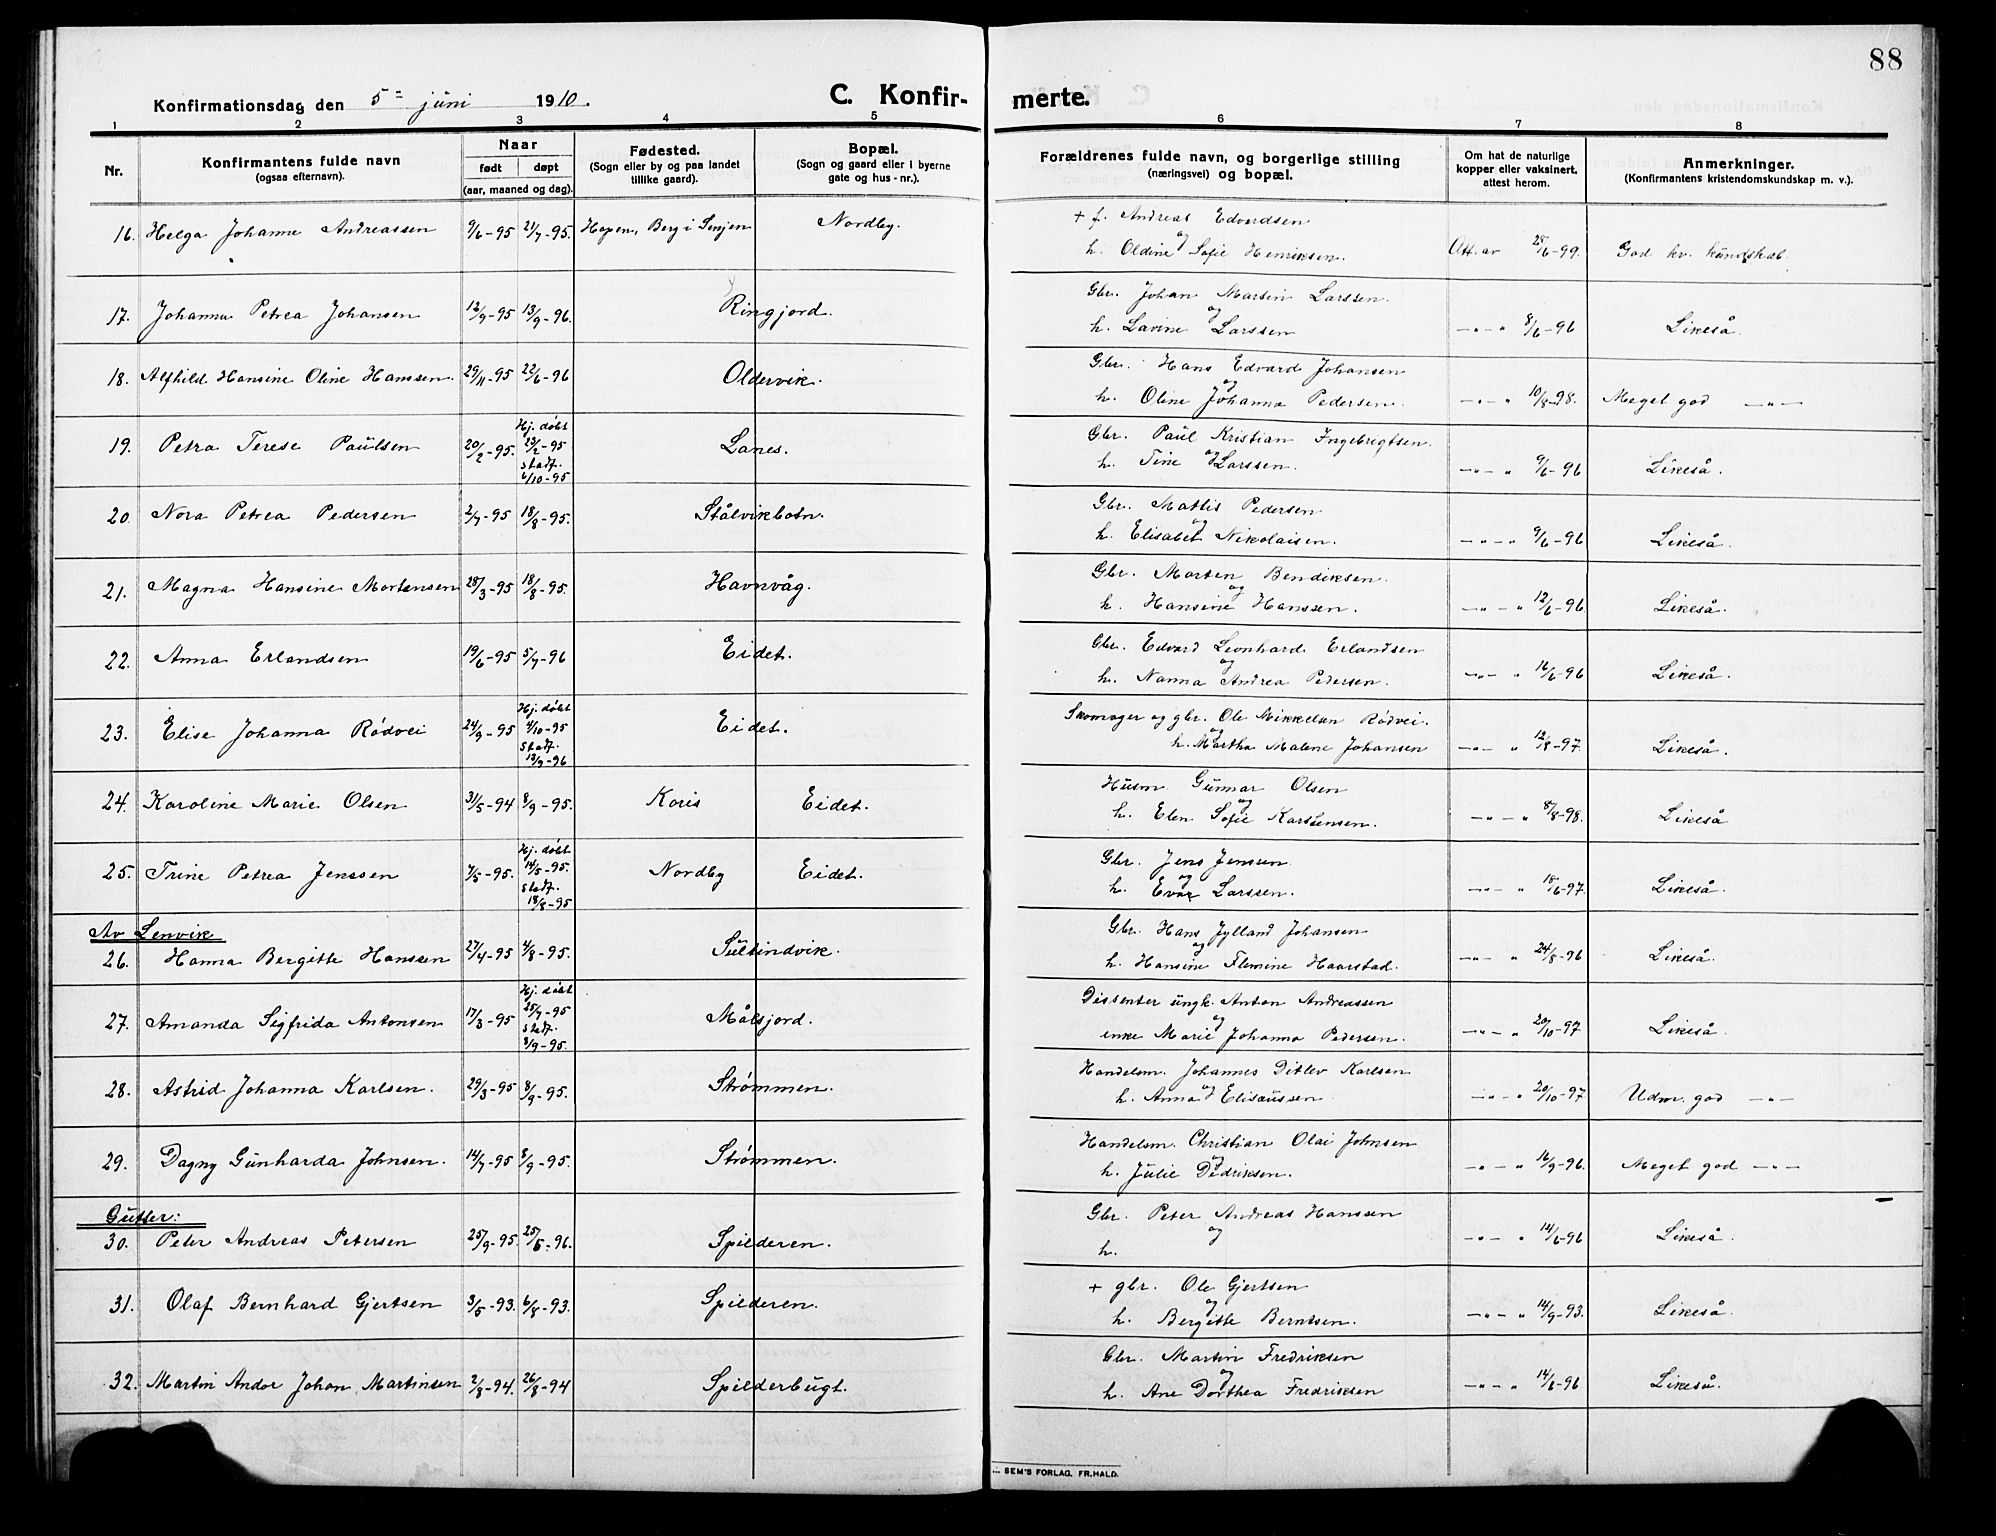 88
Konfirmationsdag den 5= juni 1910.
C. Konfir- merte.
1 2 3 4 5 6 7 8
Nr.
Konfirmantens fulde navn
(ogsaa efternavn).
Naar
født døpt
(aar, maaned og dag).
Fødested.
(Sogn eller by og paa landet
tillike gaard).
Bopæl.
(Sogn og gaard eller i byerne
gate og hus-nr.).
Forældrenes fulde navn, og borgerlige stilling
(næringsvei) og bopæl.
Om hat de naturlige
kopper eller vaksinert,
attest herom.
Anmerkninger.
(Konfirmantens kristendomskundskap m. v.).
16. Helga Johanne Andreassen 9/6-95 21/7-95. Hopen, Berg i Senjen Nordby. + f. Andreas Edvardsen
og
h. Oldine Sofie Henriksen. Att. av 25/6-99. God kr. kundskab.
17. Johanna Petrea Johansen 12/9-95 13/9-96. Ringjord. Gbr. Johan Martin Larssen.
og
h. Lavine Larssen —„— „ 8/6-96 Likeså.
18. Alfhild Hansine Oline Hanssen. 29/11-95 22/6-96 Oldervik. Gbr. Hans Edvard Johansen
og
h. Oline Johanna Pedersen. —„— „ 10/8-98. Meget god —„—
19. Petra Terese Paulsen 20/2-95. Hj. døbt
23/2-95
stadf.
6/10-95 Lanes. Gbr. Paul Kristian Ingebrigtsen.
og
h. Tine Larssen. —„— „ 9/6-96 Likeså.
20. Nora Petrea Pedersen 2/7-95 18/8-95. Stålvikbotn. Gbr. Mattis Pedersen
og
h. Elisabet Nikolaisen. —„— „ 9/6-96 Likeså.
21. Magna Hansine Mortensen 28/3-95 18/8-95. Havnvåg. Gbr. Morten Bendiksen.
og
h. Hansine Hanssen. —„— „ 12/6-96 Likeså.
22. Anna Erlandsen 19/6-95 5/7-96 Eidet. Gbr. Edvard Leonhard Erlandsen
og
h. Nanna Andrea Pedersen. —„— „ 16/6-96 Likeså.
23. Elise Johanna Rødvei 24/9-95 Hj. døbt
4/10-95
stadf.
13/9-96 Eidet. Skomager og gbr. Ole Mikkelsen Rødvei.
og
h. Martha Malene Johansen —„— „ 12/8-97. Likeså.
24. Karoline Marie Olsen 31/5-94 8/9-95. Koris Eidet. Husm. Gunnar Olsen
og
h. Elen Sofie Karstensen. —„— „ 8/8-98. Likeså
25. Trine Petrea Jenssen 7/5-95. Hj. døbt
14/5-95.
stadf.
18/8-95 Nordby Eidet. Gbr. Jens Jenssen
og
h. Eva Larssen. —„— „ 18/6-97. Likeså.
Av Lenvik
26. Hanna Bergitte Hanssen 27/4-95 4/8-95. Sultindvik. Gbr. Hans Jylland Johansen
og
h. Hansine Flemine Haarstad. —„— „ 24/8-96 Likeså.
27. Amanda Sigfrida Antonsen 17/3-95 Hj. døbt
25/7-95
stadf.
8/9-95. Målsjord. Dissenter ungk. Anton Andreassen
og
enke Marie Johanna Pedersen. —„— „ 20/10-97 Likeså.
28. Astrid Johanna Karlsen. 29/3-95 8/9-95. Strømmen. Handelsm. Johannes Ditlev Karlsen
og
h. Anna Elisæussen. —„— „ 20/10-97. Udm. god —„—
29. Dagny Gunharda Johnsen. 14/7-95 8/9-95. Strømmen. Handelsm. Christian Olai Johnsen
og
h. Julie Dedriksen. —„— „ 16/9-96. Meget god —„—
Gutter:
30. Peter Andreas Petersen 25/9-95. 25/5-96. Spilderen. Gbr. Peter Andreas Hanssen
og
h. —„— „ 14/6-96 Likeså.
31. Olaf Bernhard Gjertsen 3/5-93. 6/8-93. Spilderen. + gbr. Ole Gjertsen
og
h. Bergitte Berntsen. —„— „ 14/9-93. Likeså.
32. Martin Andor Johan Martinsen 2/8-94. 26/8-94 Spilderbugt. Gbr. Martin Fredriksen
og
h. Ane Dorthea Fredriksen —„— „ 14/6-96 Likeså.
SEM'S FORLAG, FR.HALD.